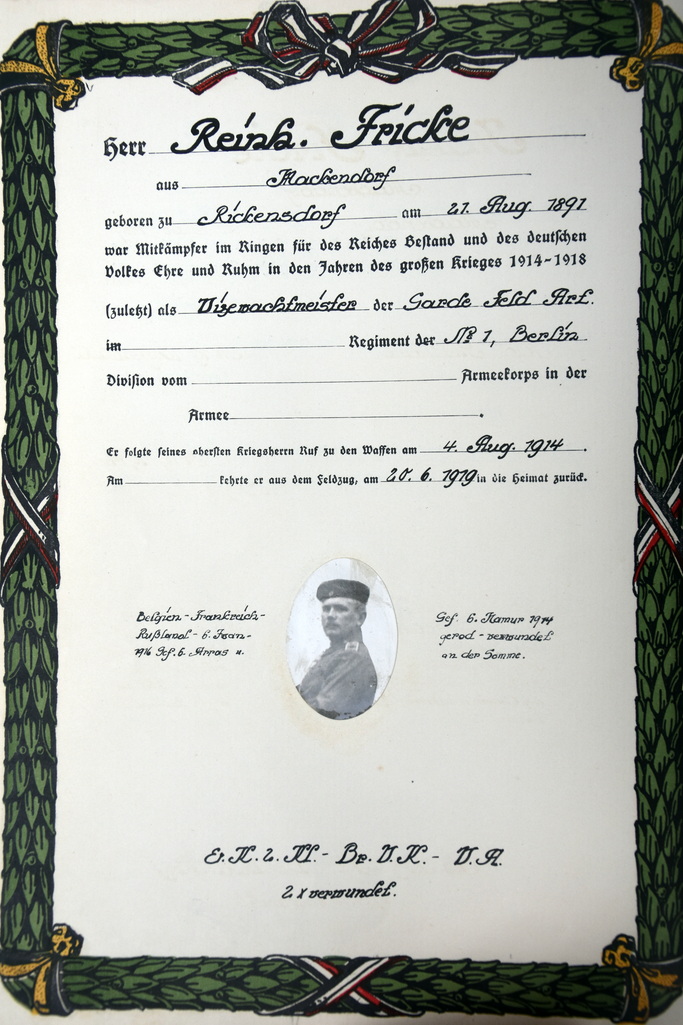 Herr Reinh. Fricke
aus Mackendorf
geboren zu Rickensdorf am 21. Aug. 1891
war Mitkämpfer im Ringen für des Reiches Bestand und des deutschen
Volkes Ehre und Ruhm in den Jahren des großen Krieges 1914-1918
(zuletzt) als Vizewachtmeister der Garde Feld Art.
im Regiment der № 1, Berlin
Division vom Armeekorps in der
Armee .
Er folgte seines obersten Kriegsherrn Ruf zu den Waffen am 4. Aug. 1914 .
Am kehrte er aus dem Feldzug, am 20. 6. 1919 in die Heimat zurück.
Belgien - Frankreich -
Rußland - b.
1916 Gef. b. Arras u.
Gef. b. Namur 1914
verwundet
an der Somme.
E. K. 2. Kl. - Br. V. K. - V. A.
2 x verwundet.